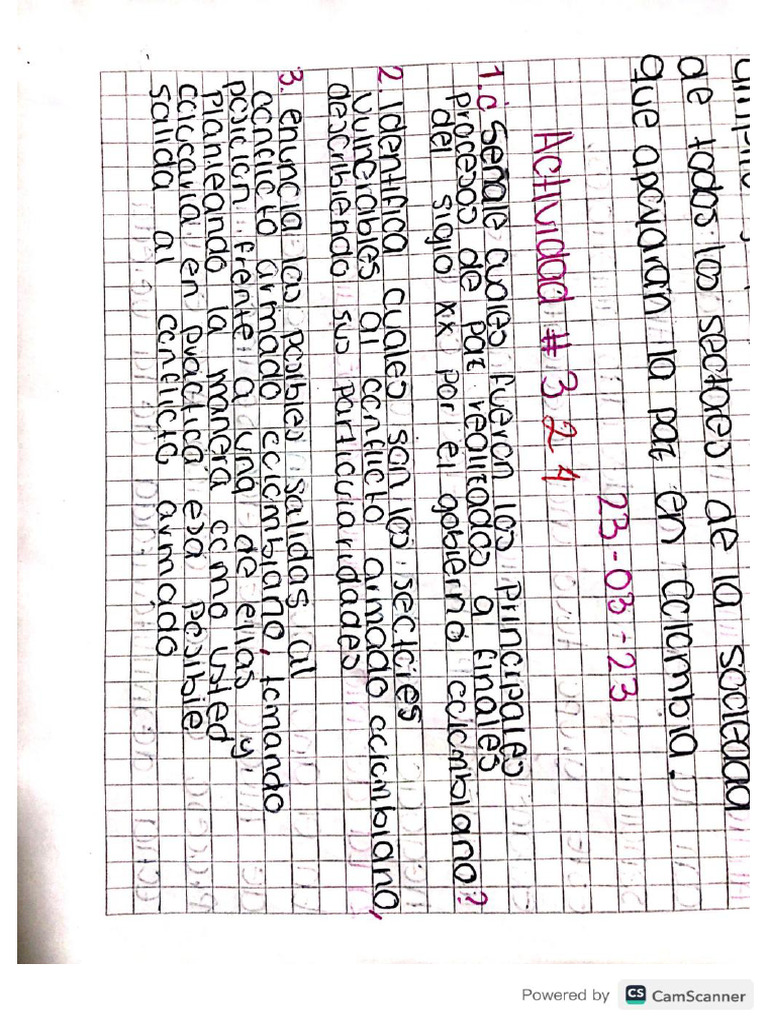 de todos los sectores de la sociedad
que apoyaran la paz en Colombia.
23-03-23
Actividad # 3 2 4
1. ¿Señale cuales fueron los principales
procesos de paz realizados a finales
del siglo xx por el gobierno colombiano?
2. Identifica cuales son los sectores
vulnerables al conflicto armado colombiano,
describiendo sus particularidades
3. enuncia las posibles salidas al
conflicto armado colombiano, tomando
posicion frente a una de ellas y
planteando la manera como usted
colocaria en practica esa posible
salida al conflicto armado
Powered by CS CamScanner